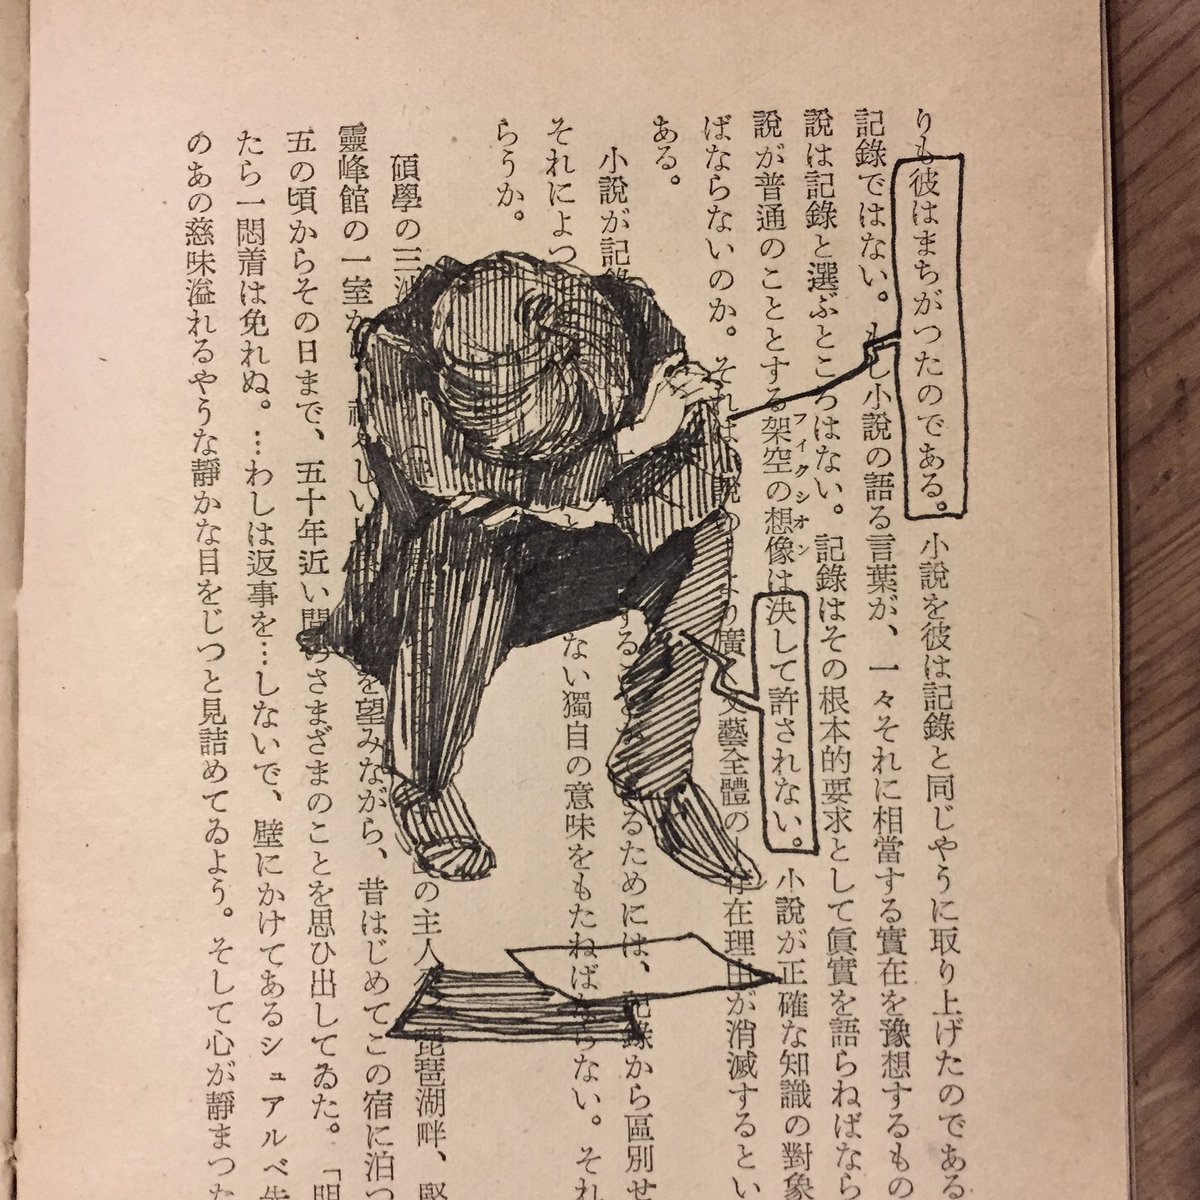 りも彼はまちがつたのである。小說を彼は記錄と同じやうに取り上げたのである
記錄ではない。もし小說の語る言葉が、一々それに相當する實在を豫想するもの
說は記錄と選ぶところはない。記錄はその根本的要求として眞實を語らねばなら
說が普通のこととする架空の想像は決して許されない。小說が正確な知識の對象
フィクシオン
ばならないのか。それは小說の より廣く文藝全體の 存在理由が消滅するとい
ある。
小說が記錄 することな るためには、記錄から區別せ
それによつ ない獨自の意味をもたねばならない。それ
らうか。
碩學の三浦 の主人 琵琶湖畔、堅
靈峰館の一室 を望みながら、昔はじめてこの宿に泊つ
五の頃からその日まで、五十年近い間のさまざまのことを思ひ出してゐた。「明
たら一悶着は免れぬ。…わしは返事を…しないで、壁にかけてあるシュアルベ先
のあの慈味溢れるやうな靜かな目をじつと見詰めてゐよう。そして心が靜まつた